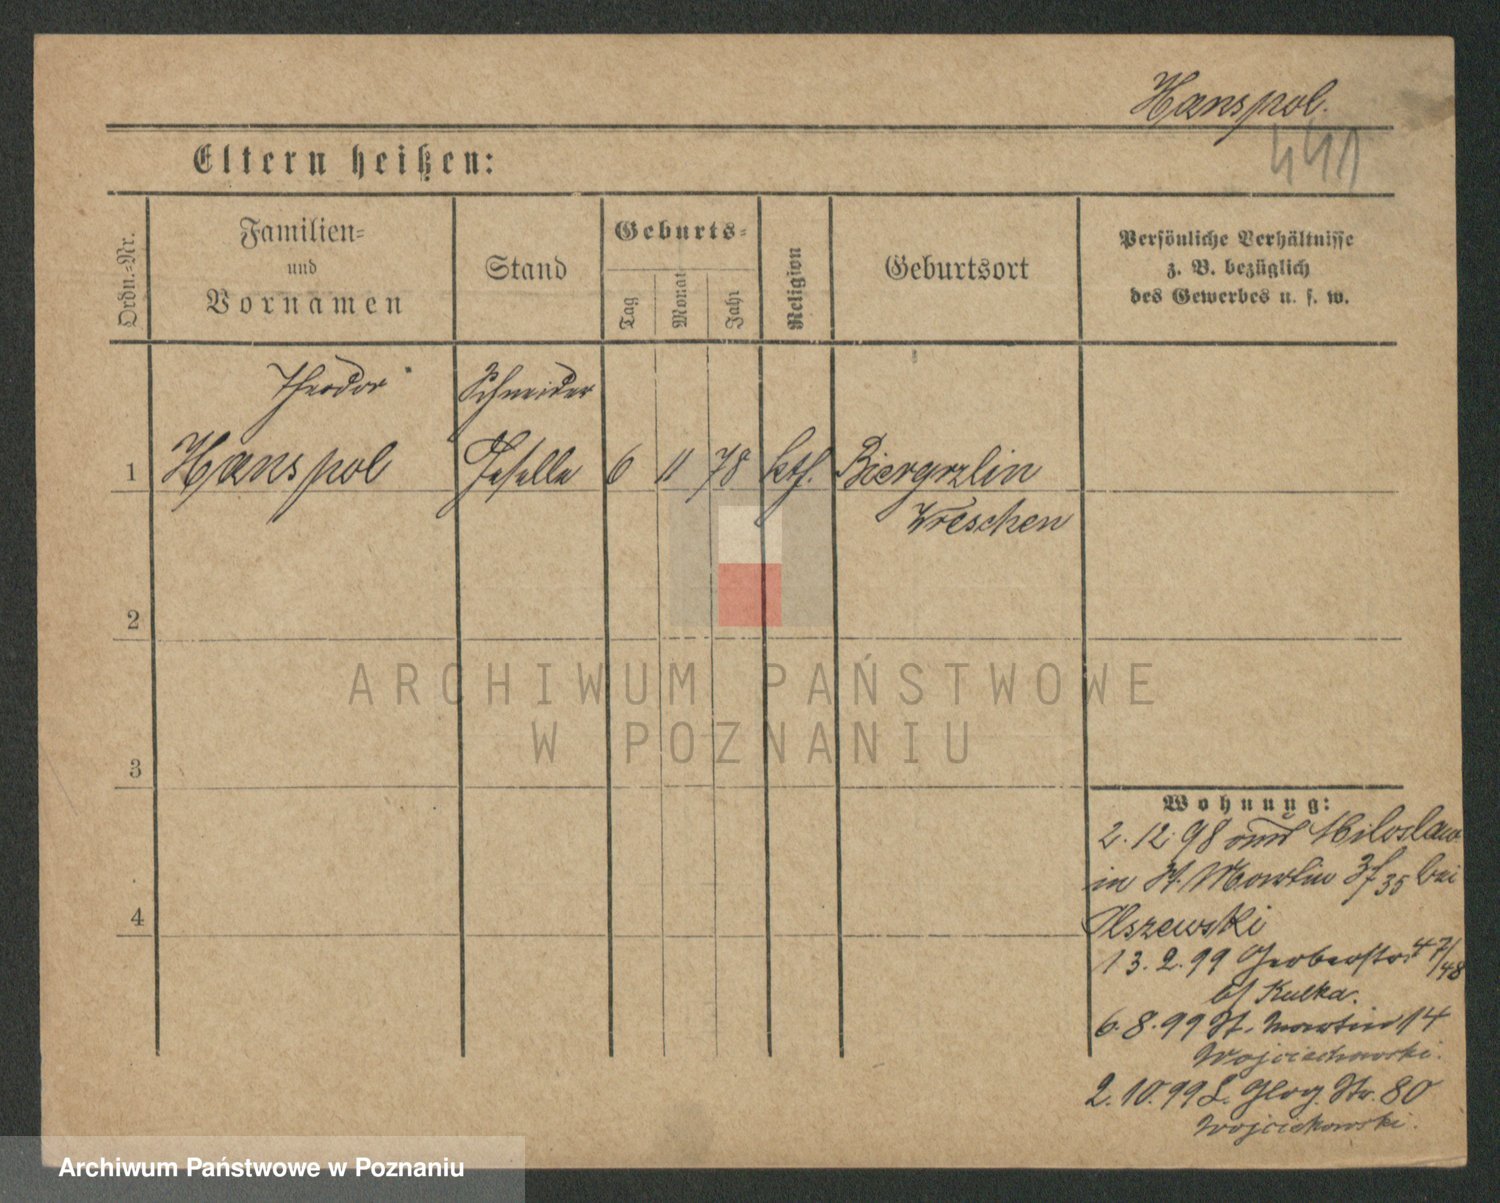 Hanspol.
441
Eltern heißen:
Ordn.-Nr.
Familien-
und
Vornamen
Stand
Geburts-
Tag
Monat
Jahr
Religion
Geburtsort
Persönliche Verhältnisse
z. B. bezüglich
des Gewerbes u. s. w.
Theodor Schneider
1 Hanspol Geselle 6 11 78 kth. Biergrzlin
Wreschen
2
ARCHIWUM PAŃSTWOWE
W POZNANIU
3
4
Wohnung:
2.12.98 aus Miloslaw
in St. Martin 35 bei
Olszewski
13.2.99 Gerberstr. 47/48
b/ Kulka.
6.8.99 St. Martin 14
Wojciechowski.
2.10.99 Glog. Str. 80
Wojciehowski.
Archiwum Państwowe w Poznaniu